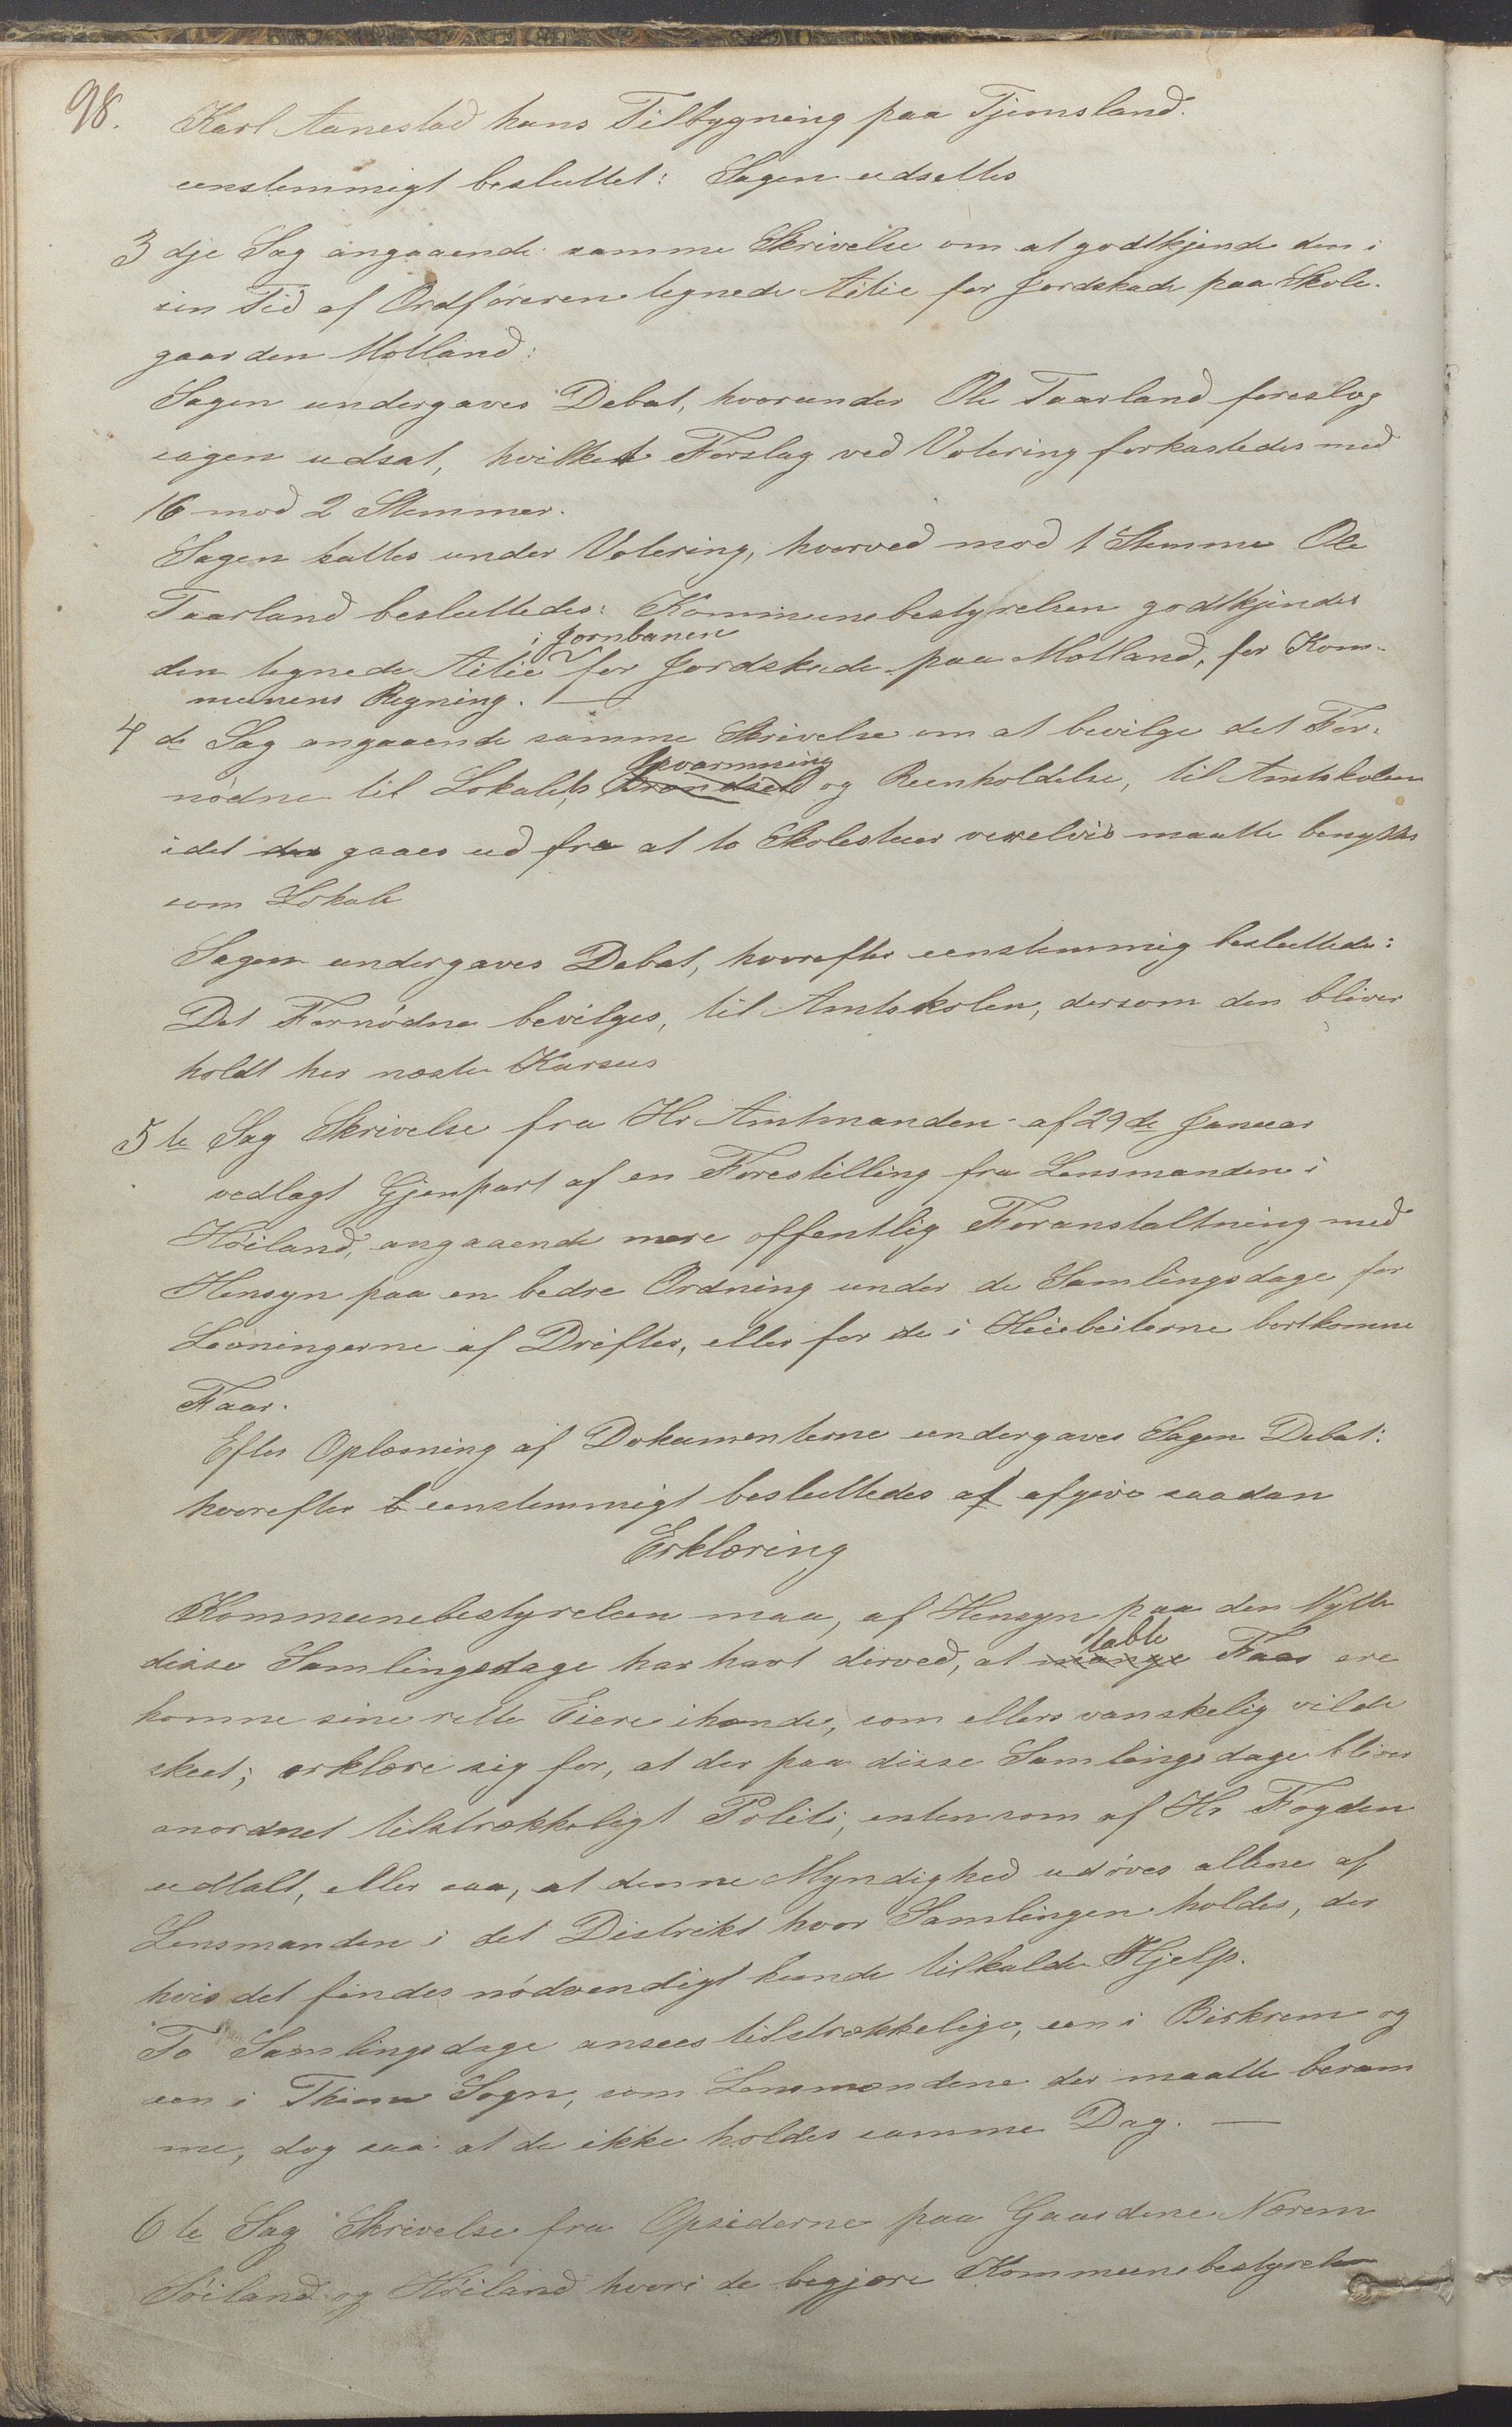 98.
Karl Aanestad hans Tilbygning paa Tjemsland.
eenstemmigt besluttet: Sagen udsettes
3 dje Sag angaaende samme Skrivelse om at godtkjende den i
sin Tid af Ordføreren tegnede Actie for Jordskade paa Skole-
gaarden Motland:
Sagen undergaves Debat, hvorunder Ole Taarland foreslog
sagen udsat, hvilket Forslag ved Votering forkastedes med
16 mod 2 Stemmer.
Sagen sattes under Votering, hvorved mod 1 Stemme Ole
Taarland besluttedes: Kommunebestyrelsen godtkjendes
i Jernbanen
den tegnede Actie for Jordskade paa Motland, for Kom-
munens Regning.
4 de Sag angaaende samme Skrivelse om at bevilge det For-
Opvarmning
nødne til Lokalets Brændsel og Reenholdelse, til Amtskolen
idet der gaaes ud fra at to Skolestuer vexelvis maatte benyttes
som Lokale
Sagen undergaves Debat, hvorefter eenstemmig besluttedes:
Det Fornødne bevilges, til Amtskolen, dersom den bliver
holdt her næste Kursus
5 te Sag Skrivelse fra Hr Amtmanden af 29 de Januar
vedlagt Gjenpart af en Forestilling fra Lensmanden i
Høiland, angaaende mere offentlig Foranstaltning med
Hensyn paa en bedre Ordning under de Samlingsdage, for
Løsningerne af Drifter, eller for de i Heiebeiterne bortkomne
Faar.
Efter Oplæsning af Dokumenterne undergaves Sagen Debat:
hvorefter eenstemmigt besluttedes at afgive saadan
Erklæring
Kommunebestyrelsen maa, af Hensyn paa den Nytte
tabte
disse Samlingsdage har havt derved, at mange Faar ere
komne sine rette Eiere ihænde, som ellers vanskelig vilde
skeet; erklære sig for, at der paa disse Samlingsdage bliver
anordnet tilstrækkeligt Politi, enten som af Hr Fogden
udtalt, eller saa, at denne Myndighed udøves allene af
Lensmanden i det Distrikt hvor Samlingen holdes, der
hvis det findes nødvendigt kunde tilkalde Hjelp.
To Samlingsdage ansees tilstrækkelige, een i Birkrem og
een i Thime Sogn, som Lensmændene der maatte beram
me, dog saa at de ikke holdes samme Dag. —
6 te Sag Skrivelse fra Opsiderne paa Gaardene Nærem
Søiland og Høiland hvori de begjære Kommunebestyrelsen